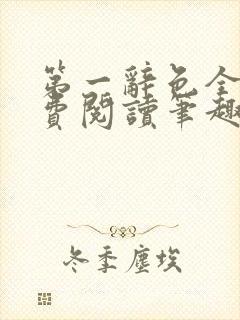 第一辭色全
費閱讀筆趣
冬季塵埃